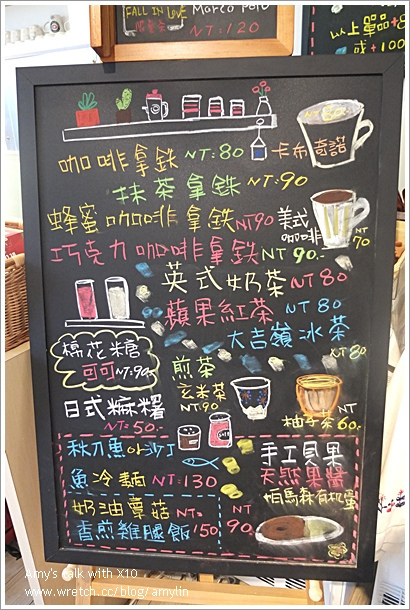 FALL IN LOVE Marco Polo
NT:120
以上單品+8
或+100
咖啡拿鐵 NT:80 卡布奇諾
抹茶拿鐵 NT:90
蜂蜜咖啡拿鐵 NT90 美式咖啡 NT70
巧克力咖啡拿鐵 NT90.-
英式奶茶 NT80
蘋果紅茶 NT80
大吉嶺冰茶
NT80
棉花糖
可可NT:90
煎茶
玄米茶
NT90
日式麻糬
NT50.-
柚子茶 NT60.-
秋刀魚or沙丁
魚冷麵 NT:130
奶油蘑菇 NT:
香煎雞腿飯 150
手工貝果
天然果醬
NT
90
Amy's talk with X10
www.wretch.cc/blog/amylin